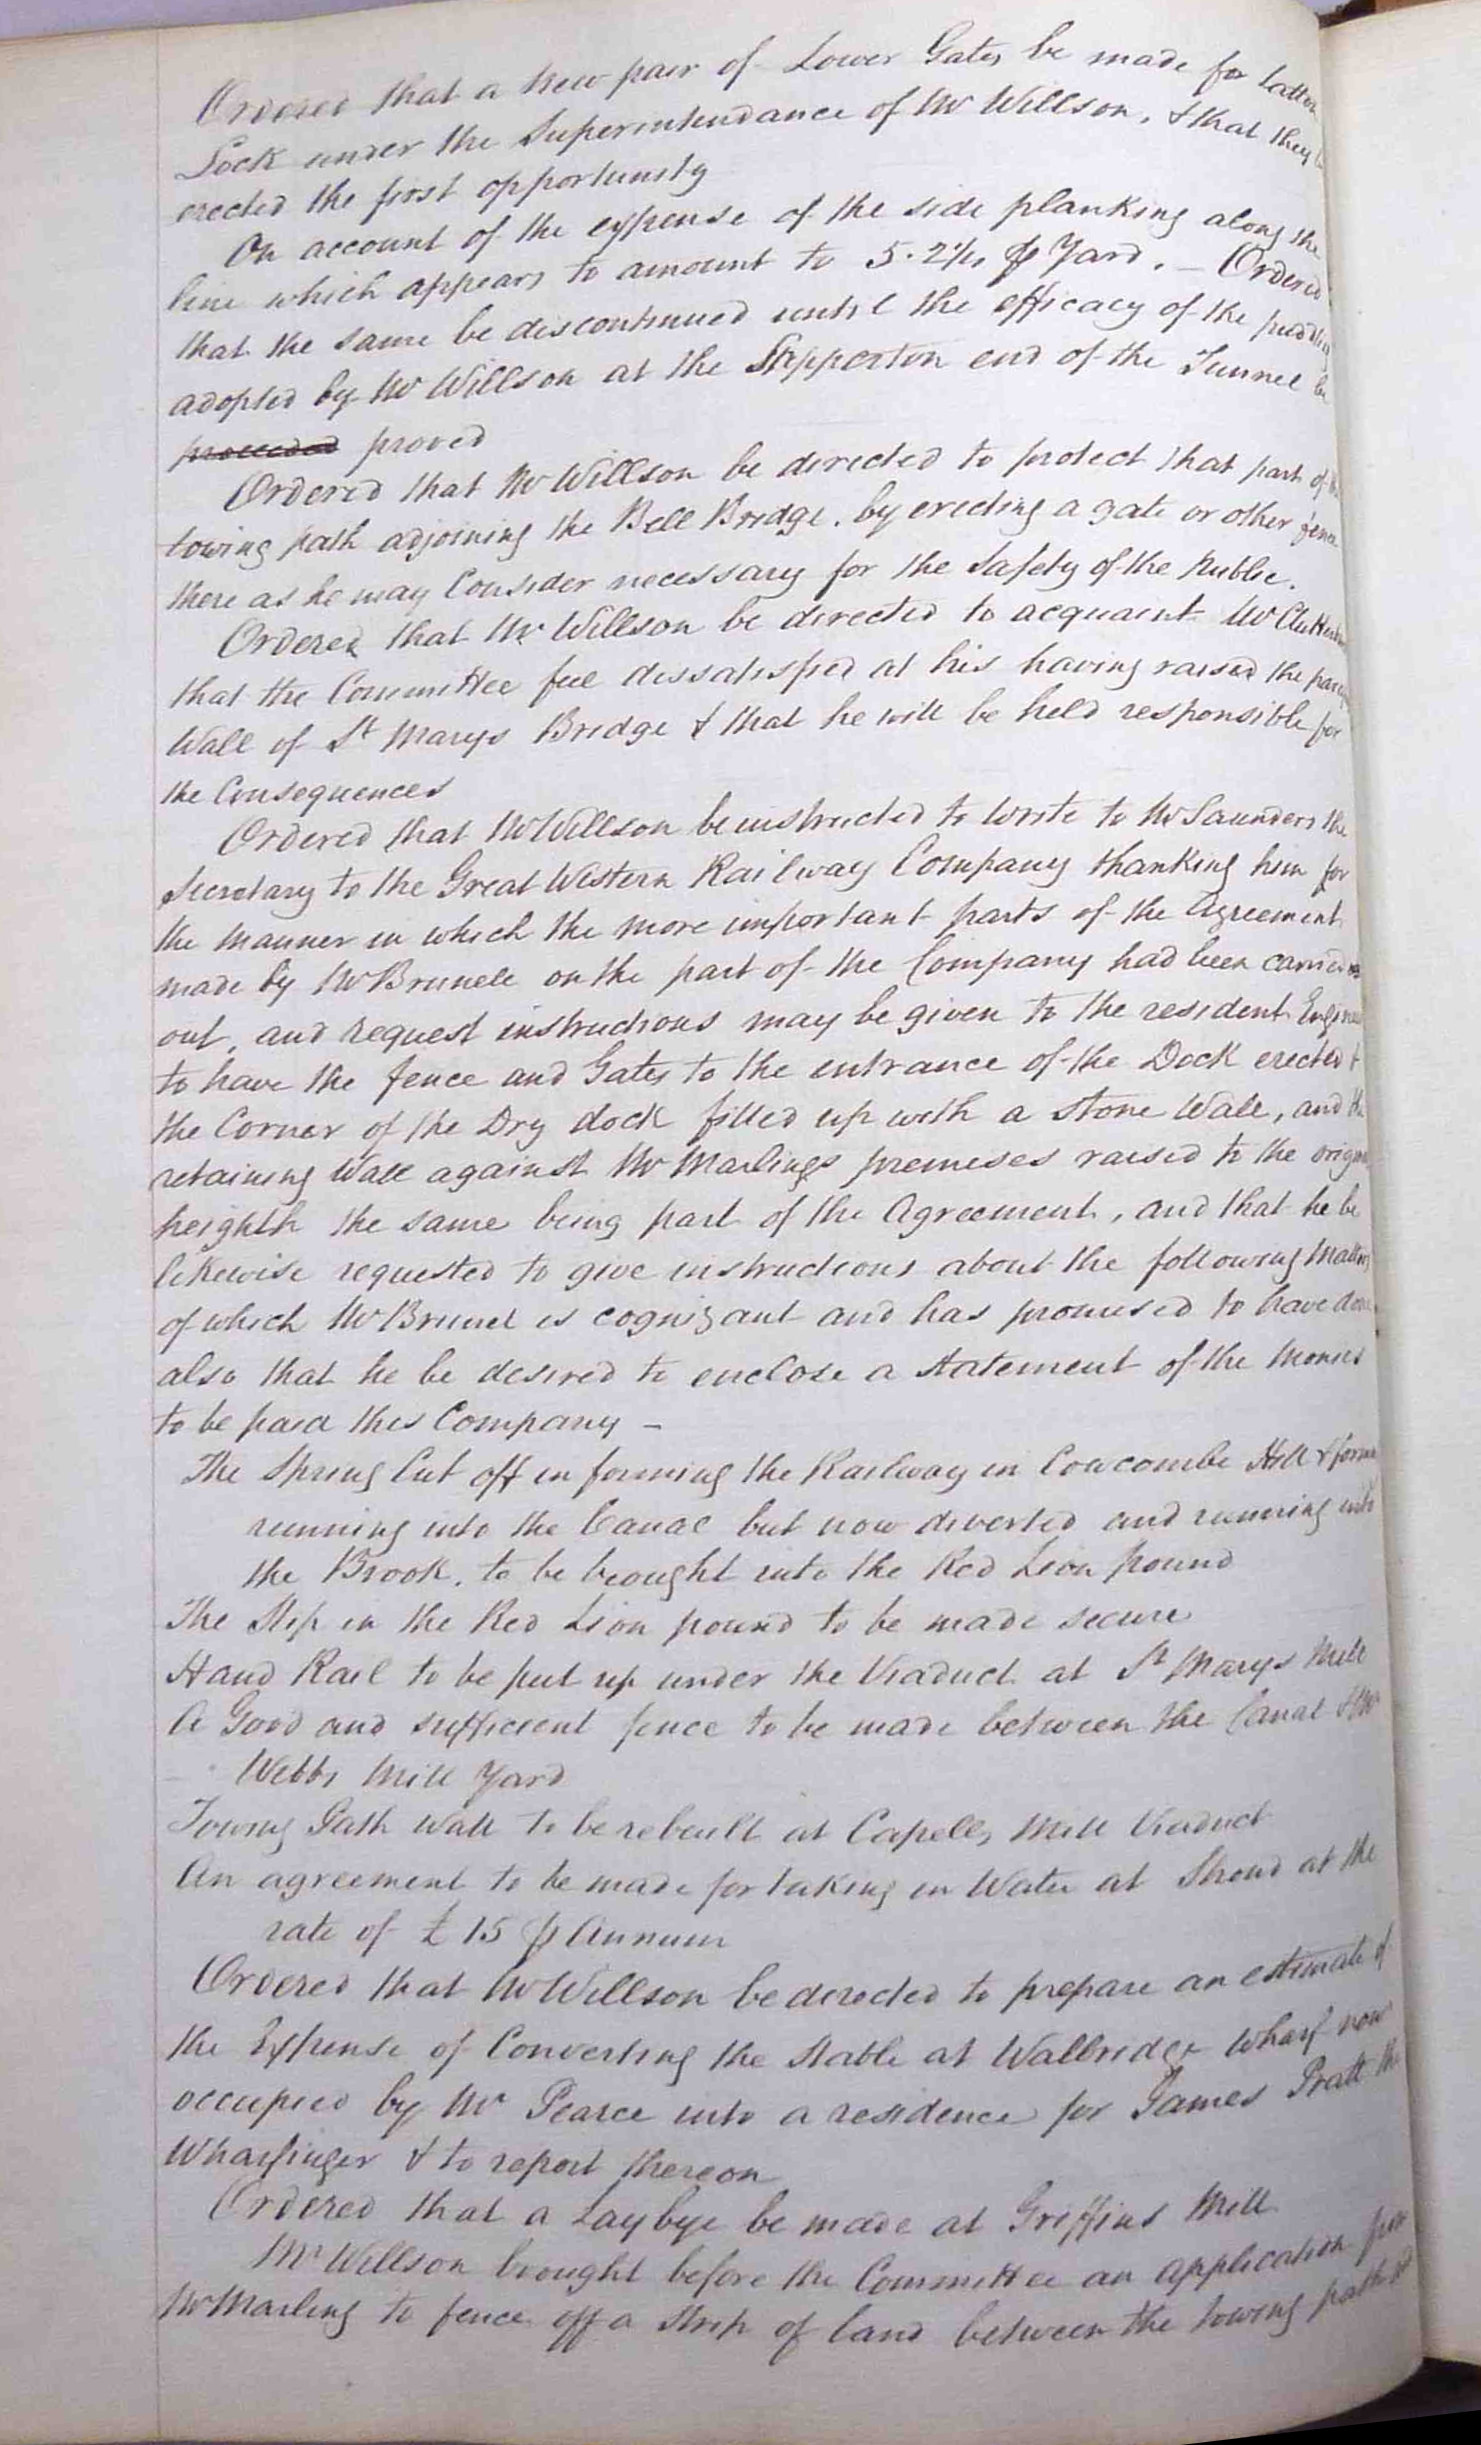 Ordered that a new pair of Lower Gates be made for Latton
Lock under the Superintendance of Mr Willson, & that they be
erected the first opportunity
On account of the expense of the side planking along the
line which appears to amount to 5.2½ ⅌ Yard. — Ordered
that the same be discontinued until the efficacy of the puddling
adopted by Mr Willson at the Sapperton end of the Tunnel be
proceeded proved
Ordered that Mr Willson be directed to protect that part of the
towing path adjoining the Bell Bridge. by erecting a gate or other fence
there as he may Consider necessary for the Safety of the Public.
Ordered that Mr Willson be directed to acquaint Mr
that the Committee feel dissatisfied at his having raised the
Wall of St Marys Bridge & that he will be held responsible for
the Consequences
Ordered that Mr Willson be instructed to write to Mr Saunders the
Secretary to the Great Western Railway Company thanking him for
the manner in which the more important parts of the Agreement
made by Mr Brunell on the part of the Company had been carried
out, and request instructions may be given to the resident Engineer
to have the fence and Gates to the entrance of the Dock erected &
the Corner of the Dry dock filled up with a stone Wall, and the
retaining Wall against Mr Marlings premises raised to the original
heighth the same being part of the Agreement, and that he be
likewise requested to give instructions about the following matters
of which Mr Brunel is cognizant and has promised to have done
also that he be desired to enclose a statement of the monies
to be paid this Company —
The Spring Cut off in forming the Railway in Cowcombe Hill & formerly
running into the Canal but now diverted and running into
the Brook. to be brought into the Red Lion pound
The Slip in the Red Lion pound to be made secure
Hand Rail to be put up under the Viaduct at St Marys Mill
A Good and sufficient fence to be made between the Canal & Mr
Webbs Mill Yard
Towing Path Wall to be rebuilt at Capells Mill Viaduct
An agreement to be made for taking in Water at Stroud at the
rate of £15 ⅌ Annum
Ordered that Mr Willson be directed to prepare an estimate of
the Expense of Converting the stable at Wallbridge Wharf now
occupied by Mr Pearce into a residence for James Pratt the
Wharfinger & to report thereon
Ordered that a Laybye be made at Griffins Mill
Mr Willson brought before the Committee an application from
Mr Marling to fence off a strip of land between the towing path and